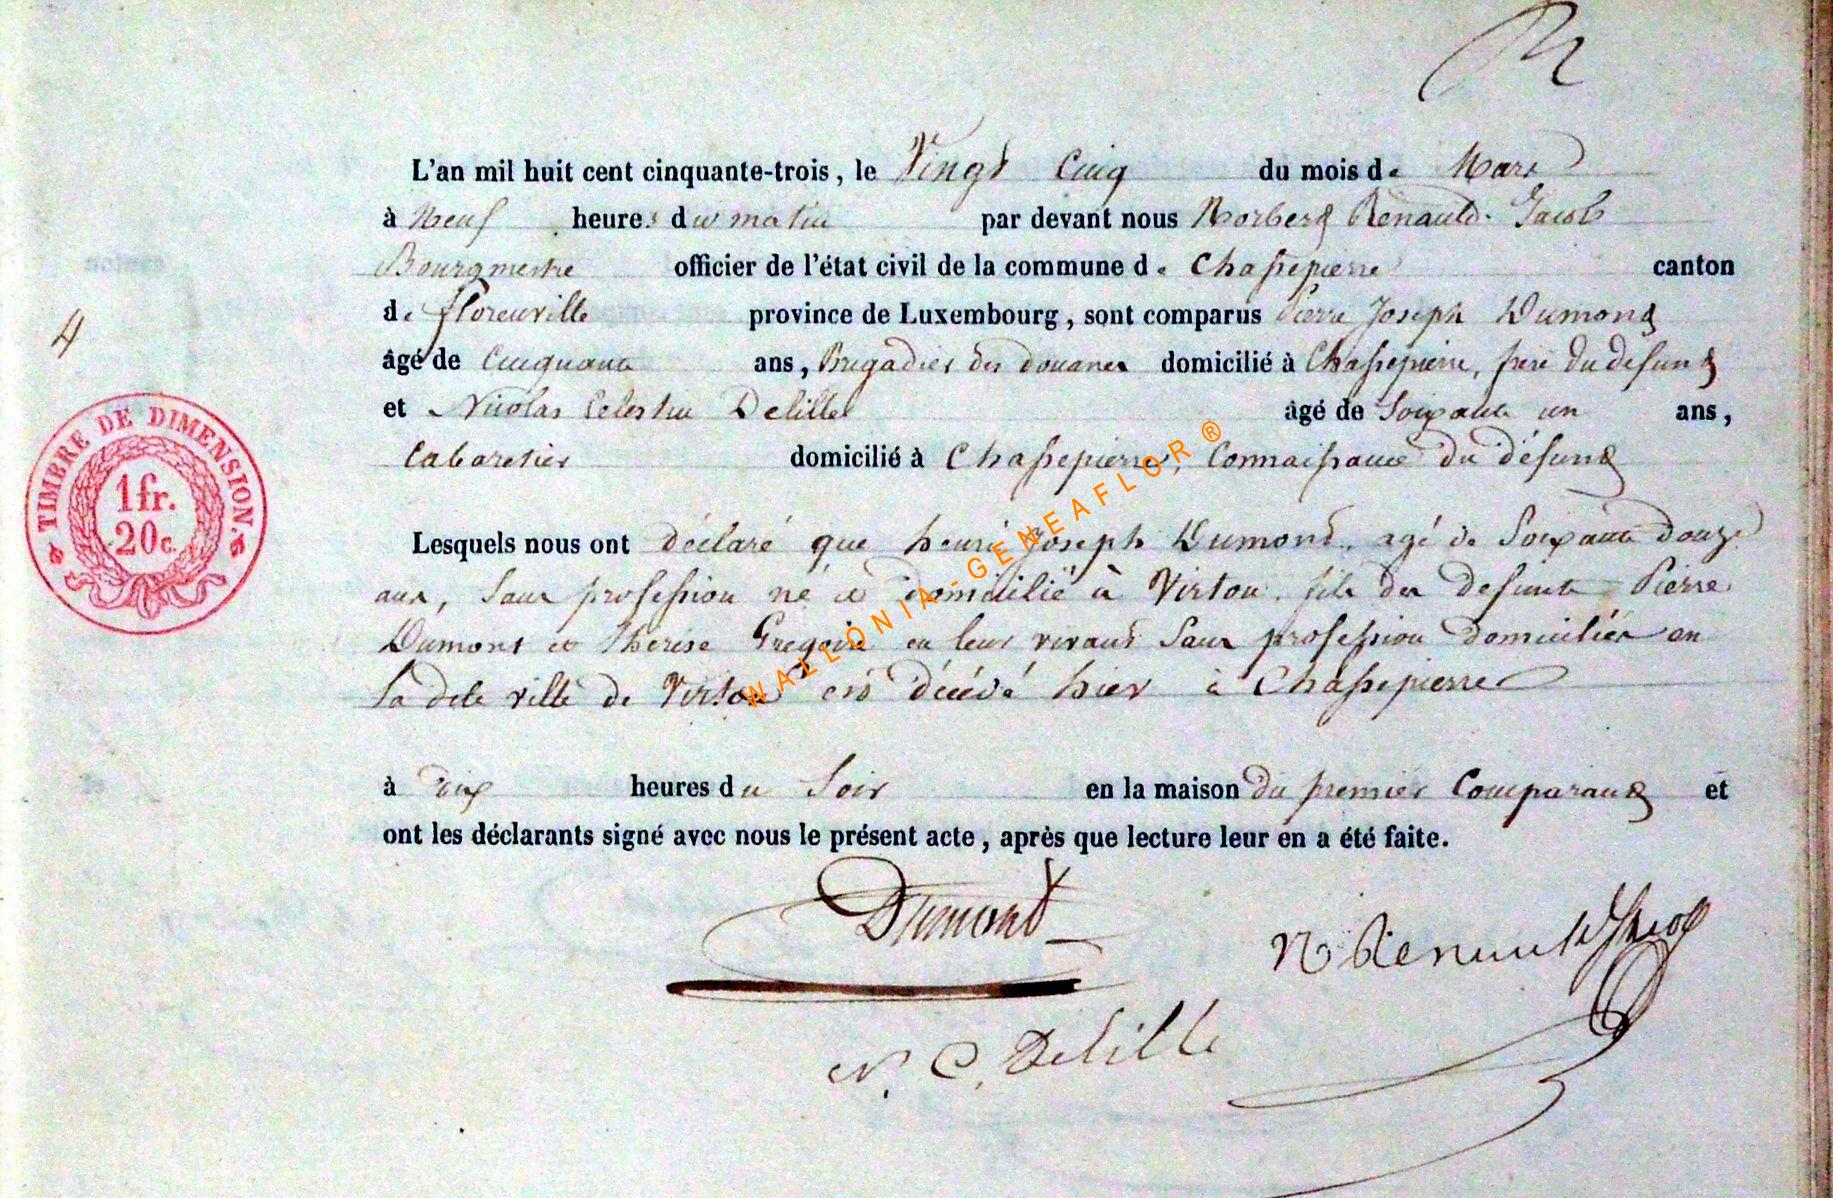 L'an mil huit cent cinquante-trois, le Vingt Cinq du mois de Mars
à Neuf heures du matin par devant nous Norbert Renauld Jacob
Bourgmestre officier de l'état civil de la commune de Chassepierre canton
de florenville province de Luxembourg, sont comparus Pierre Joseph Dumont
âgé de Cinquante ans, Brigadier des douanes domicilié à Chassepierre, frere du defunt
et Nicolas Celestin Delille âgé de Soixante un ans,
Cabaretier domicilié à Chassepierre, Connaissance du défunt
Lesquels nous ont déclaré que henri Joseph Dumont, agé de Soixante douze
ans, Sans profession né et domicilié à Virton, fils des defunts Pierre
Dumont et Thérèse Gregoire en leur vivant Sans profession domiciliés en
la dite ville de Virton est décédé hier à Chassepierre
à dix heures du Soir en la maison du premier Comparant et
ont les déclarants signé avec nous le présent acte, après que lecture leur en a été faite.
Dumont
N Renauld Jacob
N. C. Delille
4
TIMBRE DE DIMENSION
1 fr.
20 c.
WALLONIA-GENEAFLOR ®